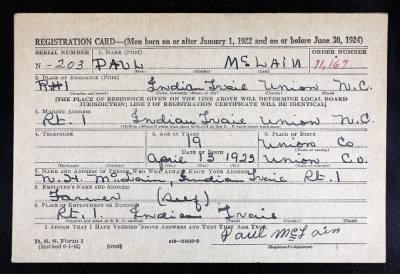 REGISTRATION CARD—(Men born on or after January 1, 1922 and on or before June 30, 1924)
SERIAL NUMBER 1. NAME (Print) ORDER NUMBER
N-203 PAUL McLAIN 11,167
(First) (Middle) (Last)
2. PLACE OF RESIDENCE (Print)
Rt 1 Indian Traie Union N.C.
(Number and street) (Town, township, village, or city) (County) (State)
[THE PLACE OF RESIDENCE GIVEN ON THE LINE ABOVE WILL DETERMINE LOCAL BOARD
JURISDICTION; LINE 2 OF REGISTRATION CERTIFICATE WILL BE IDENTICAL]
3. MAILING ADDRESS
Rt. 1 Indian Traie Union N.C.
[Mailing address if other than place indicated on line 2. If same insert word same]
4. TELEPHONE 5. AGE IN YEARS 6. PLACE OF BIRTH
19 Union Co
DATE OF BIRTH
April 13 1923 Union Co.
(Exchange) (Number) (Mo.) (Day) (Yr.) (State or country)
7. NAME AND ADDRESS OF PERSON WHO WILL ALWAYS KNOW YOUR ADDRESS
McLain, Indian Traie Rt. 1
8. EMPLOYER'S NAME AND ADDRESS
Farmer (Self)
9. PLACE OF EMPLOYMENT OR BUSINESS
Rt. 1. Indian Traie
(Number and street or R. F. D. number) (Town) (County) (State)
I AFFIRM THAT I HAVE VERIFIED ABOVE ANSWERS AND THAT THEY ARE TRUE.
Paul McLain
D. S. S. Form 1
(Revised 6-1-42) (over) 16—21630-2 (Registrant's signature)